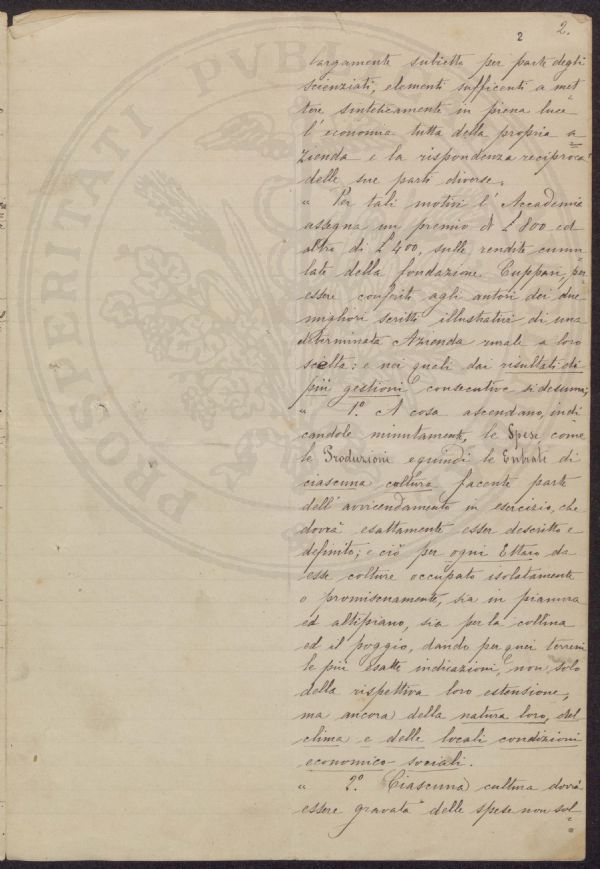 2.
2
largamente subietto per parte degli
scienziati, elementi sufficenti a met
tere sinteticamente in piena luce
l'economia tutta della propria a
zienda e la rispondenza reciproca
delle sue parti diverse.
" Per tali motivi l'Accademia
assegna un premio di £ 800 ed
altro di £ 400, sulle rendite cumu
late della fondazione Cuppari, per
essere conferiti agli autori dei due
migliori scritti illustrativi di una
determinata Azienda rurale a loro
scelta: e nei quali dai risultati di
più gestioni consecutive si desuma;
" 1º. A cosa ascendano, indi
candole minutamente, le Spese come
le Produzioni e quindi le Entrate di
ciascuna cultura facente parte
dell'avvicendamento in esercizio, che
dovrà esattamente esser descritto e
definito; e ciò per ogni Ettaro da
esse colture occupato isolatamente
o promiscuamente, sia in pianura
ed altipiano, sia per la collina
ed il poggio, dando per quei terreni
le più esatte indicazioni, non solo
della rispettiva loro estensione,
ma ancora della natura loro, del
clima e delle locali condizioni
economico sociali.
" 2º. Ciascuna cultura dovrà
essere gravata delle spese non sol
PROS PERITATI PVBL